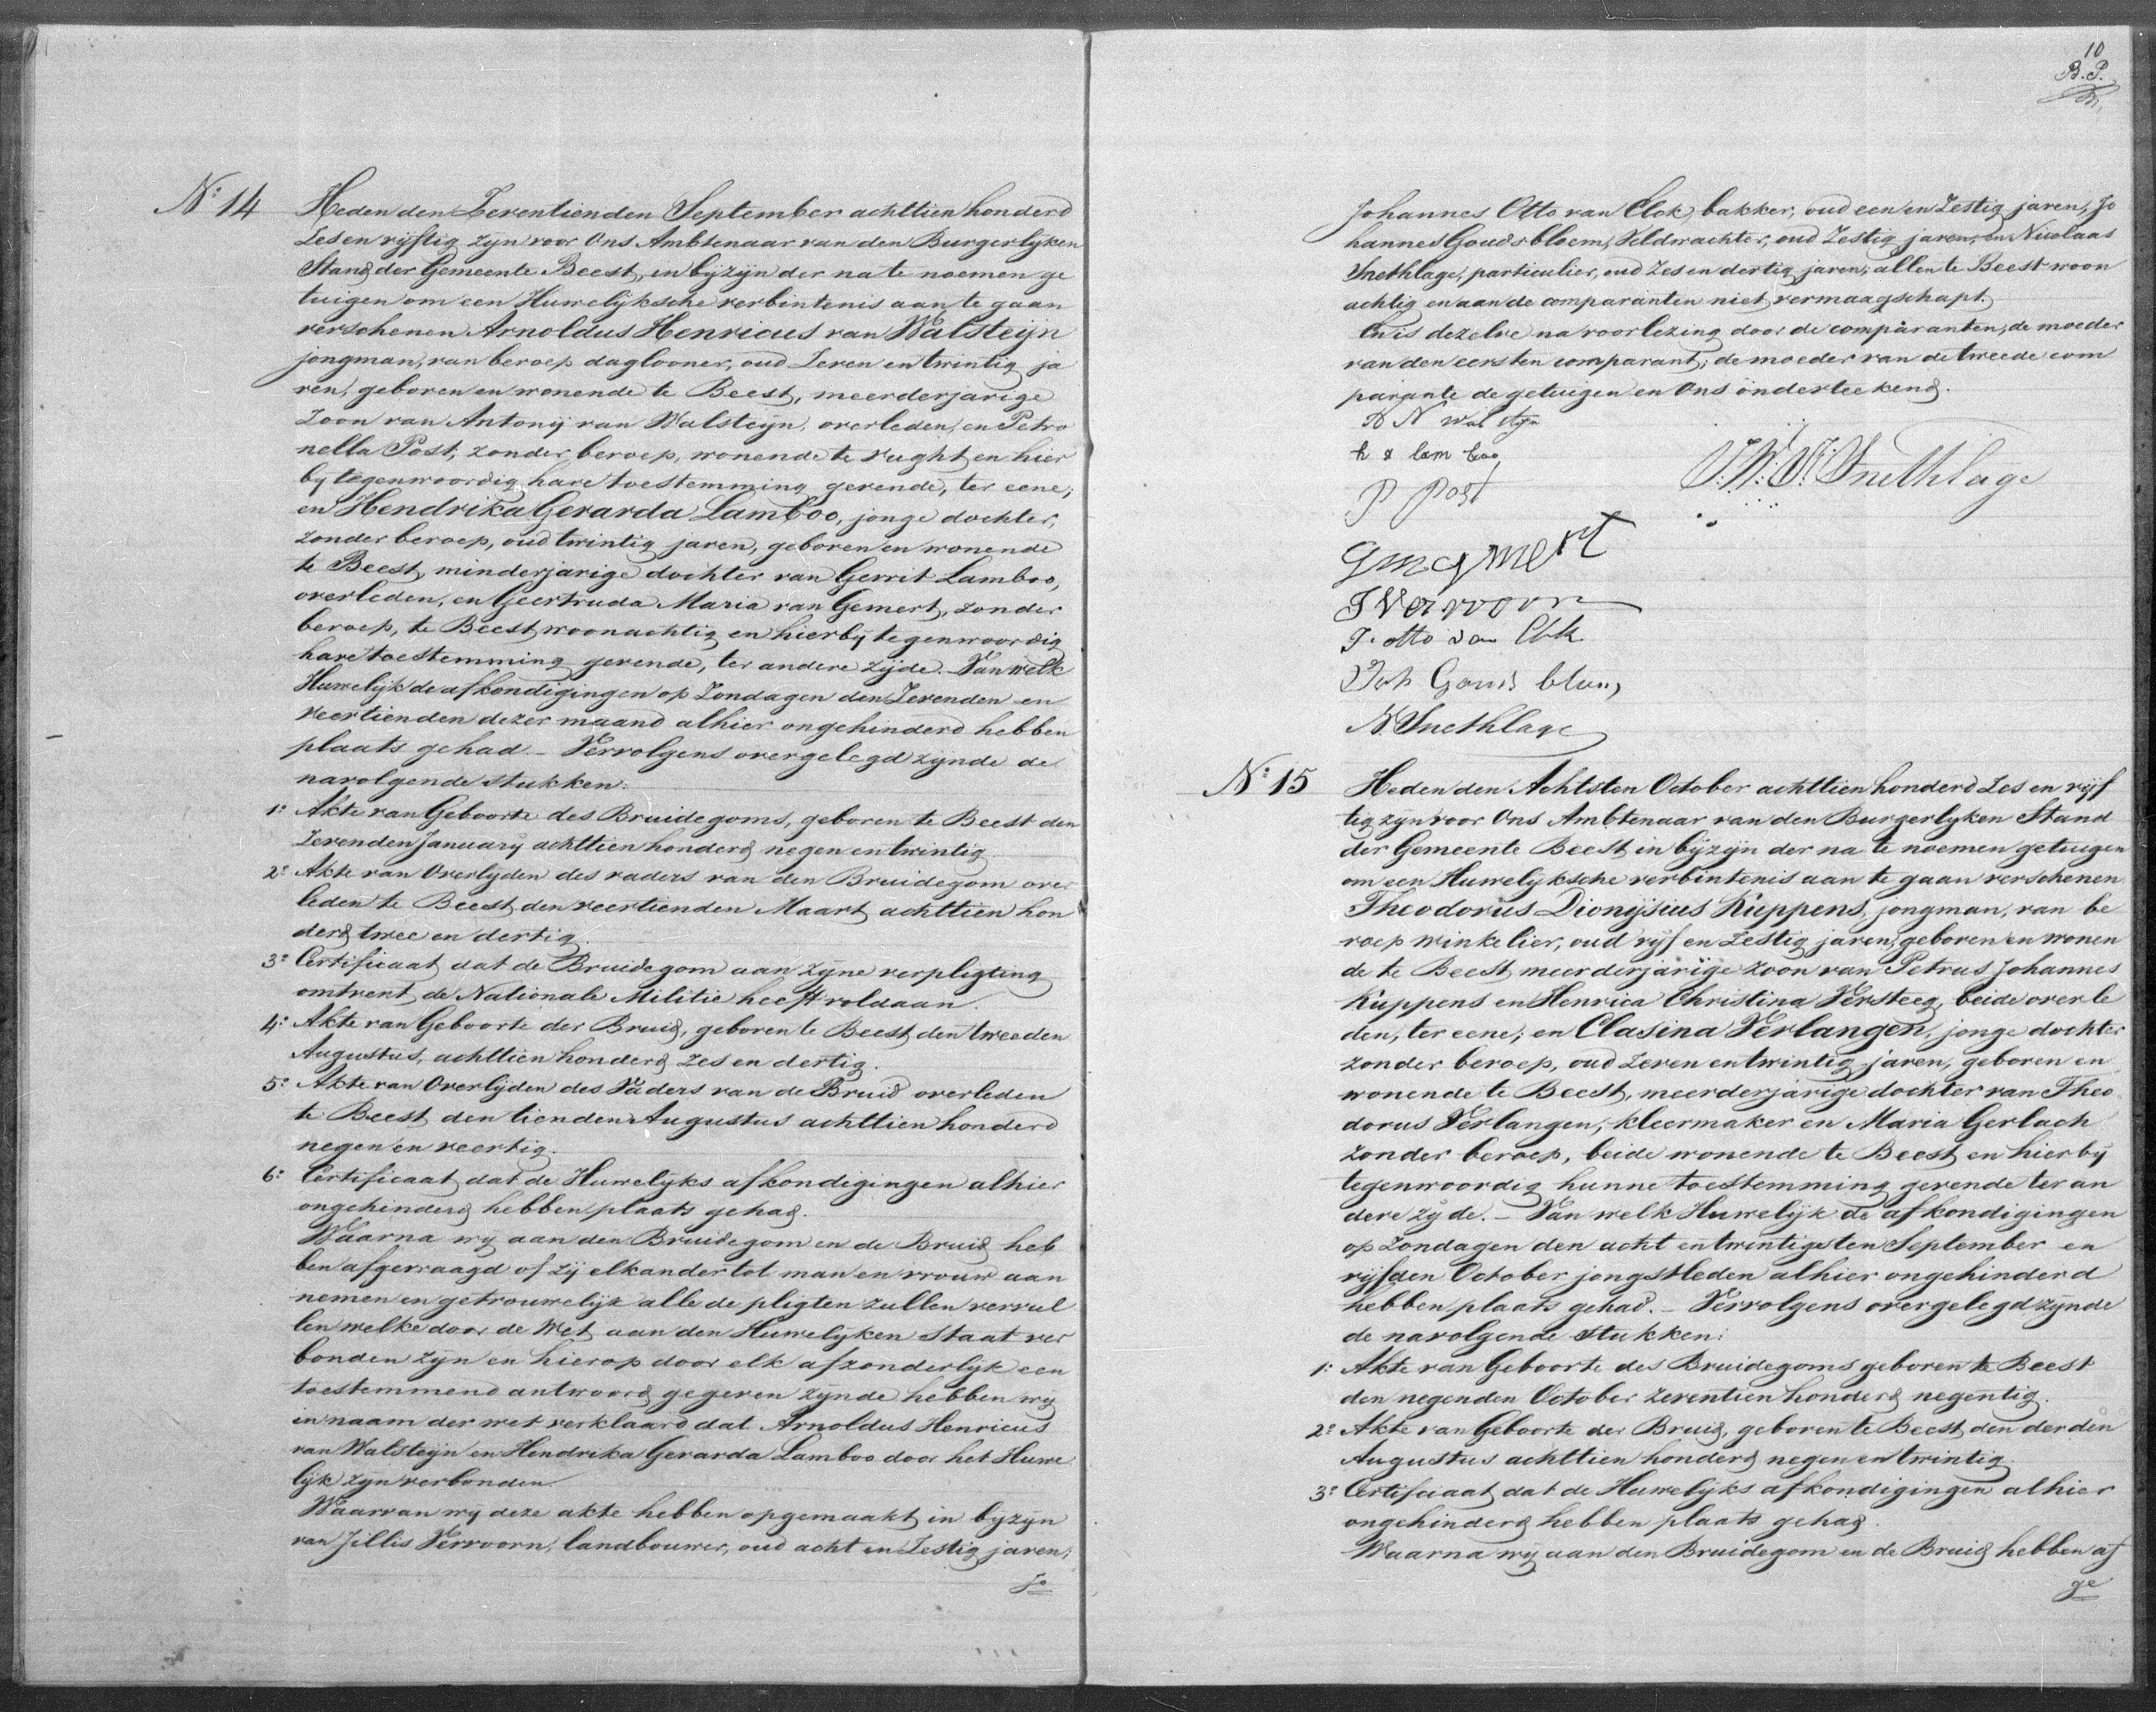 No: 14
Heden den Zeventienden September achttien honderd
Zes en vijftig zijn voor Ons Ambtenaar van den Burgerlijken
Stand der Gemeente Beest, in bijzijn der na te noemen ge
tuigen om een Huwelijksche verbintenis aan te gaan
verschenen Arnoldus Henricus van Walsteijn
jongman, van beroep daglooner, oud Zeven en twintig ja
ren, geboren en wonende te Beest, meerderjarige
Zoon van Antonij van Walsteijn, overleden, en Petro
nella Post, zonder beroep, wonende te Vught en hier
bij tegenwoordig hare toestemming gevende, ter eene,
en Hendrika Gerarda Lamboo, jonge dochter,
zonder beroep, oud twintig jaren, geboren en wonende
te Beest, minderjarige dochter van Gerrit Lamboo,
overleden, en Geertruda Maria van Gemert, zonder
beroep, te Beest woonachtig en hierbij tegenwoordig
hare toestemming gevende, ter andere zijde. Van welk
Huwelijk de afkondigingen op Zondagen den Zevenden en
veertienden dezer maand alhier ongehinderd hebben
plaats gehad. - Vervolgens overgelegd zijnde de
navolgende stukken:
1: Akte van Geboorte des Bruidegoms, geboren te Beest den
Zevenden January achttien honderd negen en twintig.
2: Akte van Overlijden des vaders van den Bruidegom over
leden te Beest den veertienden Maart achttien hon
derd twee en dertig.
3: Certificaat dat de Bruidegom aan zijne verpligting
omtrent de Nationale Militie heeft voldaan.
4: Akte van Geboorte der Bruid, geboren te Beest den tweeden
Augustus, achttien honderd zes en dertig.
5: Akte van Overlijden des Vaders van de Bruid overleden
te Beest den tienden Augustus achttien honderd
negen en veertig.
6: Certificaat dat de Huwelijks afkondigingen alhier
ongehinderd hebben plaats gehad.
Waarna wij aan den Bruidegom en de Bruid heb
ben afgevraagd of zij elkander tot man en vrouw aan
nemen en getrouwelijk alle de pligten zullen vervul
len welke door de Wet aan den Huwelijken Staat ver
bonden zijn en hierop door elk afzonderlijk een
toestemmend antwoord gegeven zijnde hebben wij
in naam der wet verklaard dat Arnoldus Henricus
van Walsteijn en Hendrika Gerarda Lamboo door het Huwe
lijk zijn verbonden.
Waarvan wij deze akte hebben opgemaakt in bijzijn
van Jillis Vervoorn, landbouwer, oud acht en Zestig jaren,
Jo
10
B. P.
Johannes Otto van Elck, bakker, oud een en Zestig jaren, Jo
hannes Goudsbloem, Veldwachter, oud Zestig jaren, en Nicolaas
Snethlage, particulier, oud Zes en dertig jaren, allen te Beest woon
achtig en aan de comparanten niet vermaagschapt.
En is dezelve na voorlezing door de comparanten, de moeder
van den eersten comparant, de moeder van de tweede com
parante de getuigen en Ons onderteekend.
h g lam boo
P Post
J Vervoorn
J. otto van Elk.
Joh Gouds bloem
N Snethlage
No: 15
Heden den Achtsten October achttien honderd Zes en vijf
tig zijn voor Ons Ambtenaar van den Burgerlyken Stand
der Gemeente Beest in bijzijn der na te noemen getuigen
om een Huwelijksche verbintenis aan te gaan verschenen
Theodorus Dionysius Kuppens, jongman, van be
roep winkelier, oud vijf en Zestig jaren, geboren en wonen
de te Beest meerderjarige zoon van Petrus Johannes
Kuppens en Henrica Christina Versteeg, beide overle
den, ter eene, en Clasina Verlangen, jonge dochter
zonder beroep, oud Zeven en twintig jaren, geboren en
wonende te Beest, meerderjarige dochter van Theo
dorus Verlangen, kleermaker en Maria Gerlach
zonder beroep, beide wonende te Beest en hierbij
tegenwoordig hunne toestemming gevende ter an
dere zyde. - Van welk Huwelijk de afkondigingen
op Zondagen den acht en twintigsten September en
vijfden October jongstleden alhier ongehinderd
hebben plaats gehad. - Vervolgens overgelegd zijnde
de navolgende stukken:
1: Akte van Geboorte des Bruidegoms geboren te Beest
den negenden October zeventien honderd negentig.
2: Akte van Geboorte der Bruid, geboren te Beest den derden
Augustus achttien honderd negen en twintig.
3: Certificaat dat de Huwelijks afkondigingen alhier
ongehinderd hebben plaats gehad.
Waarna wij aan den Bruidegom en de Bruid hebben af
ge